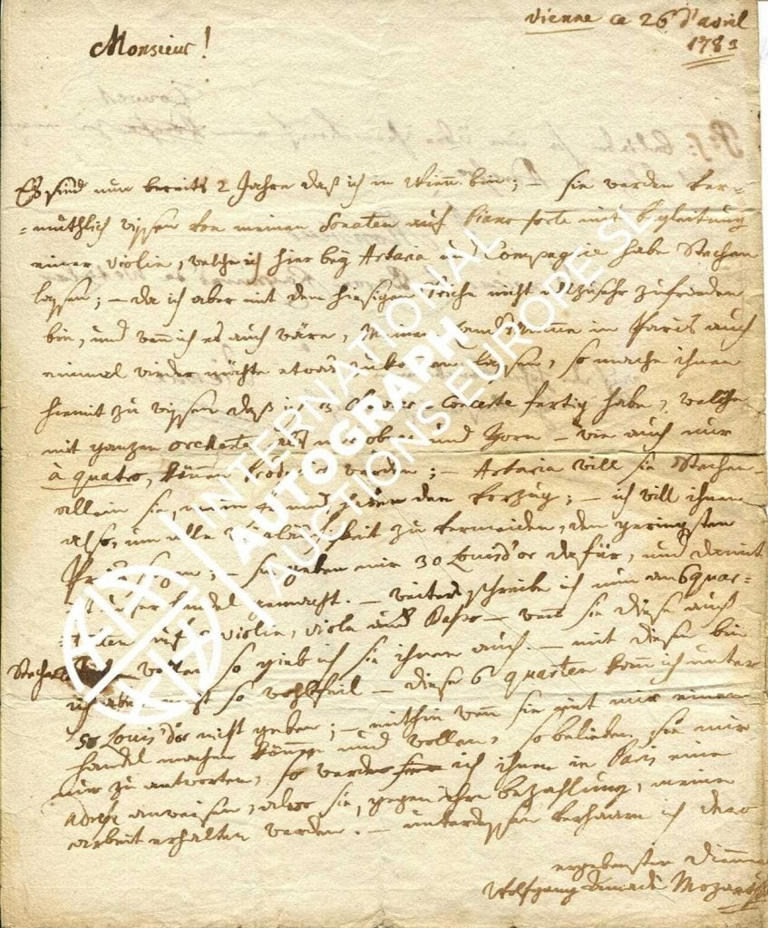 Vienne ce 26 d'avril
1783
Monsieur!
Es sind nun bereits 2 Jahre daß ich in Wienn bin; – sie werden ver=
=muthlich wissen von meinen Sonaten auf Piano forte mit begleitung
einer Violin, welche ich hier bey Artaria und Compagnie habe Stechen
lassen; – da ich aber mit dem hiesigen Stiche nicht allzusehr zufrieden
bin, und wenn ich es auch wäre, meinen Landsmann in Paris auch
einmal wieder möchte etwas zukommen lassen, so mache ihnen
hiemit zu wissen daß ich 3 Clavier Concerte fertig habe, welche
mit ganzen orchestre, als mit oboen und Horn – wie auch nur
à quatro, können Producirt werden; – Artaria will sie Stechen
allein sie, mein freund, haben den Vorzug; – ich will ihnen
also, um alle Weitläufigkeit zu vermeiden, den geringsten
Preis – sie geben mir 30 Louis d'or dafür, und damit
ist unser Handel gemacht. – weiters schreibe ich nun an 6 quar=
tetten auf 2 violin, viola und Basso – wenn sie diese auch
Stechen wollen so gieb ich sie ihnen auch. – mit diesen bin
ich aber nicht so wohlfeil – diese 6 quartetten kann ich unter
50 Louis d'or nicht geben; – mithin wenn sie mit mir einen
Handel machen können und wollen, so belieben sie mir
nur zu antworten, so werde ich ihnen in Paris eine
adresse anweisen, allwo sie, gegen ihre bezahlung, meine
arbeit erhalten werden. – unterdessen verharre ich dero
ergebenster Diener
Wolfgang Amadè Mozart
INTERNATIONAL
AUTOGRAPH
AUCTIONS EUROPE SL